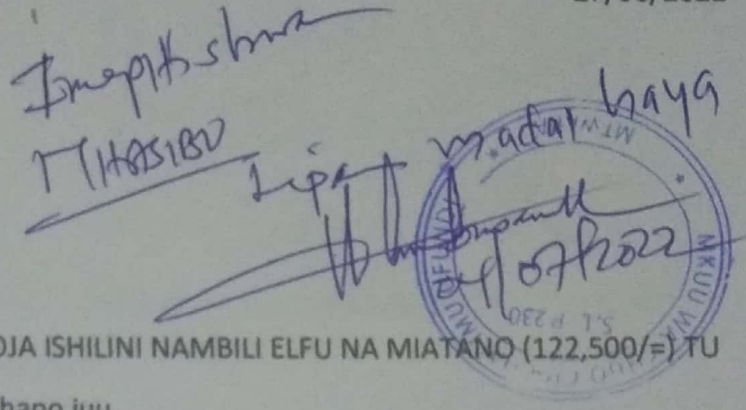 Imepitishwa
MHASIBU
Lipa madai haya
4/07/2022
MKUU WA
S.L.P 230
OJA ISHILINI NAMBILI ELFU NA MIATANO (122,500/=) TU
hapo juu